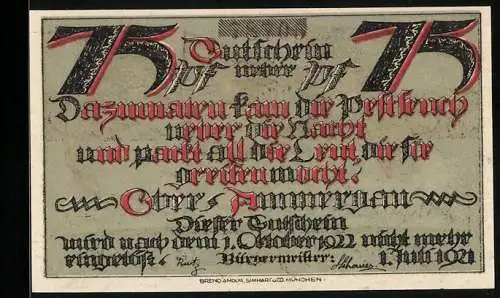 75 75
Gutschein
Pf ueber Pf
Dazumalen kam die Pestseuch
ueber die Nacht
und packt all die Leut, die sie
greifen mocht.
Ober-Ammergau
Dieser Gutschein
wird nach dem 1. Oktober 1922 nicht mehr
eingelöst. Bürgermeister: 1. Juli 1921